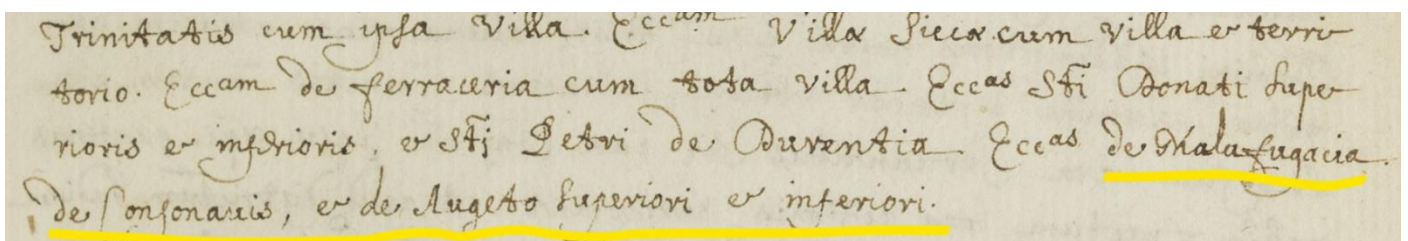 Trinitatis cum ipsa Villa. Eccam Villæ Siccæ cum villa et terri
torio. Eccam de ferraceria cum tota villa. Eccas Sti Donati supe
rioris et inferioris, et Sti Petri de Durentia. Eccas de Malafugacia.
de Consonavis, et de Augeto superiori et inferiori.